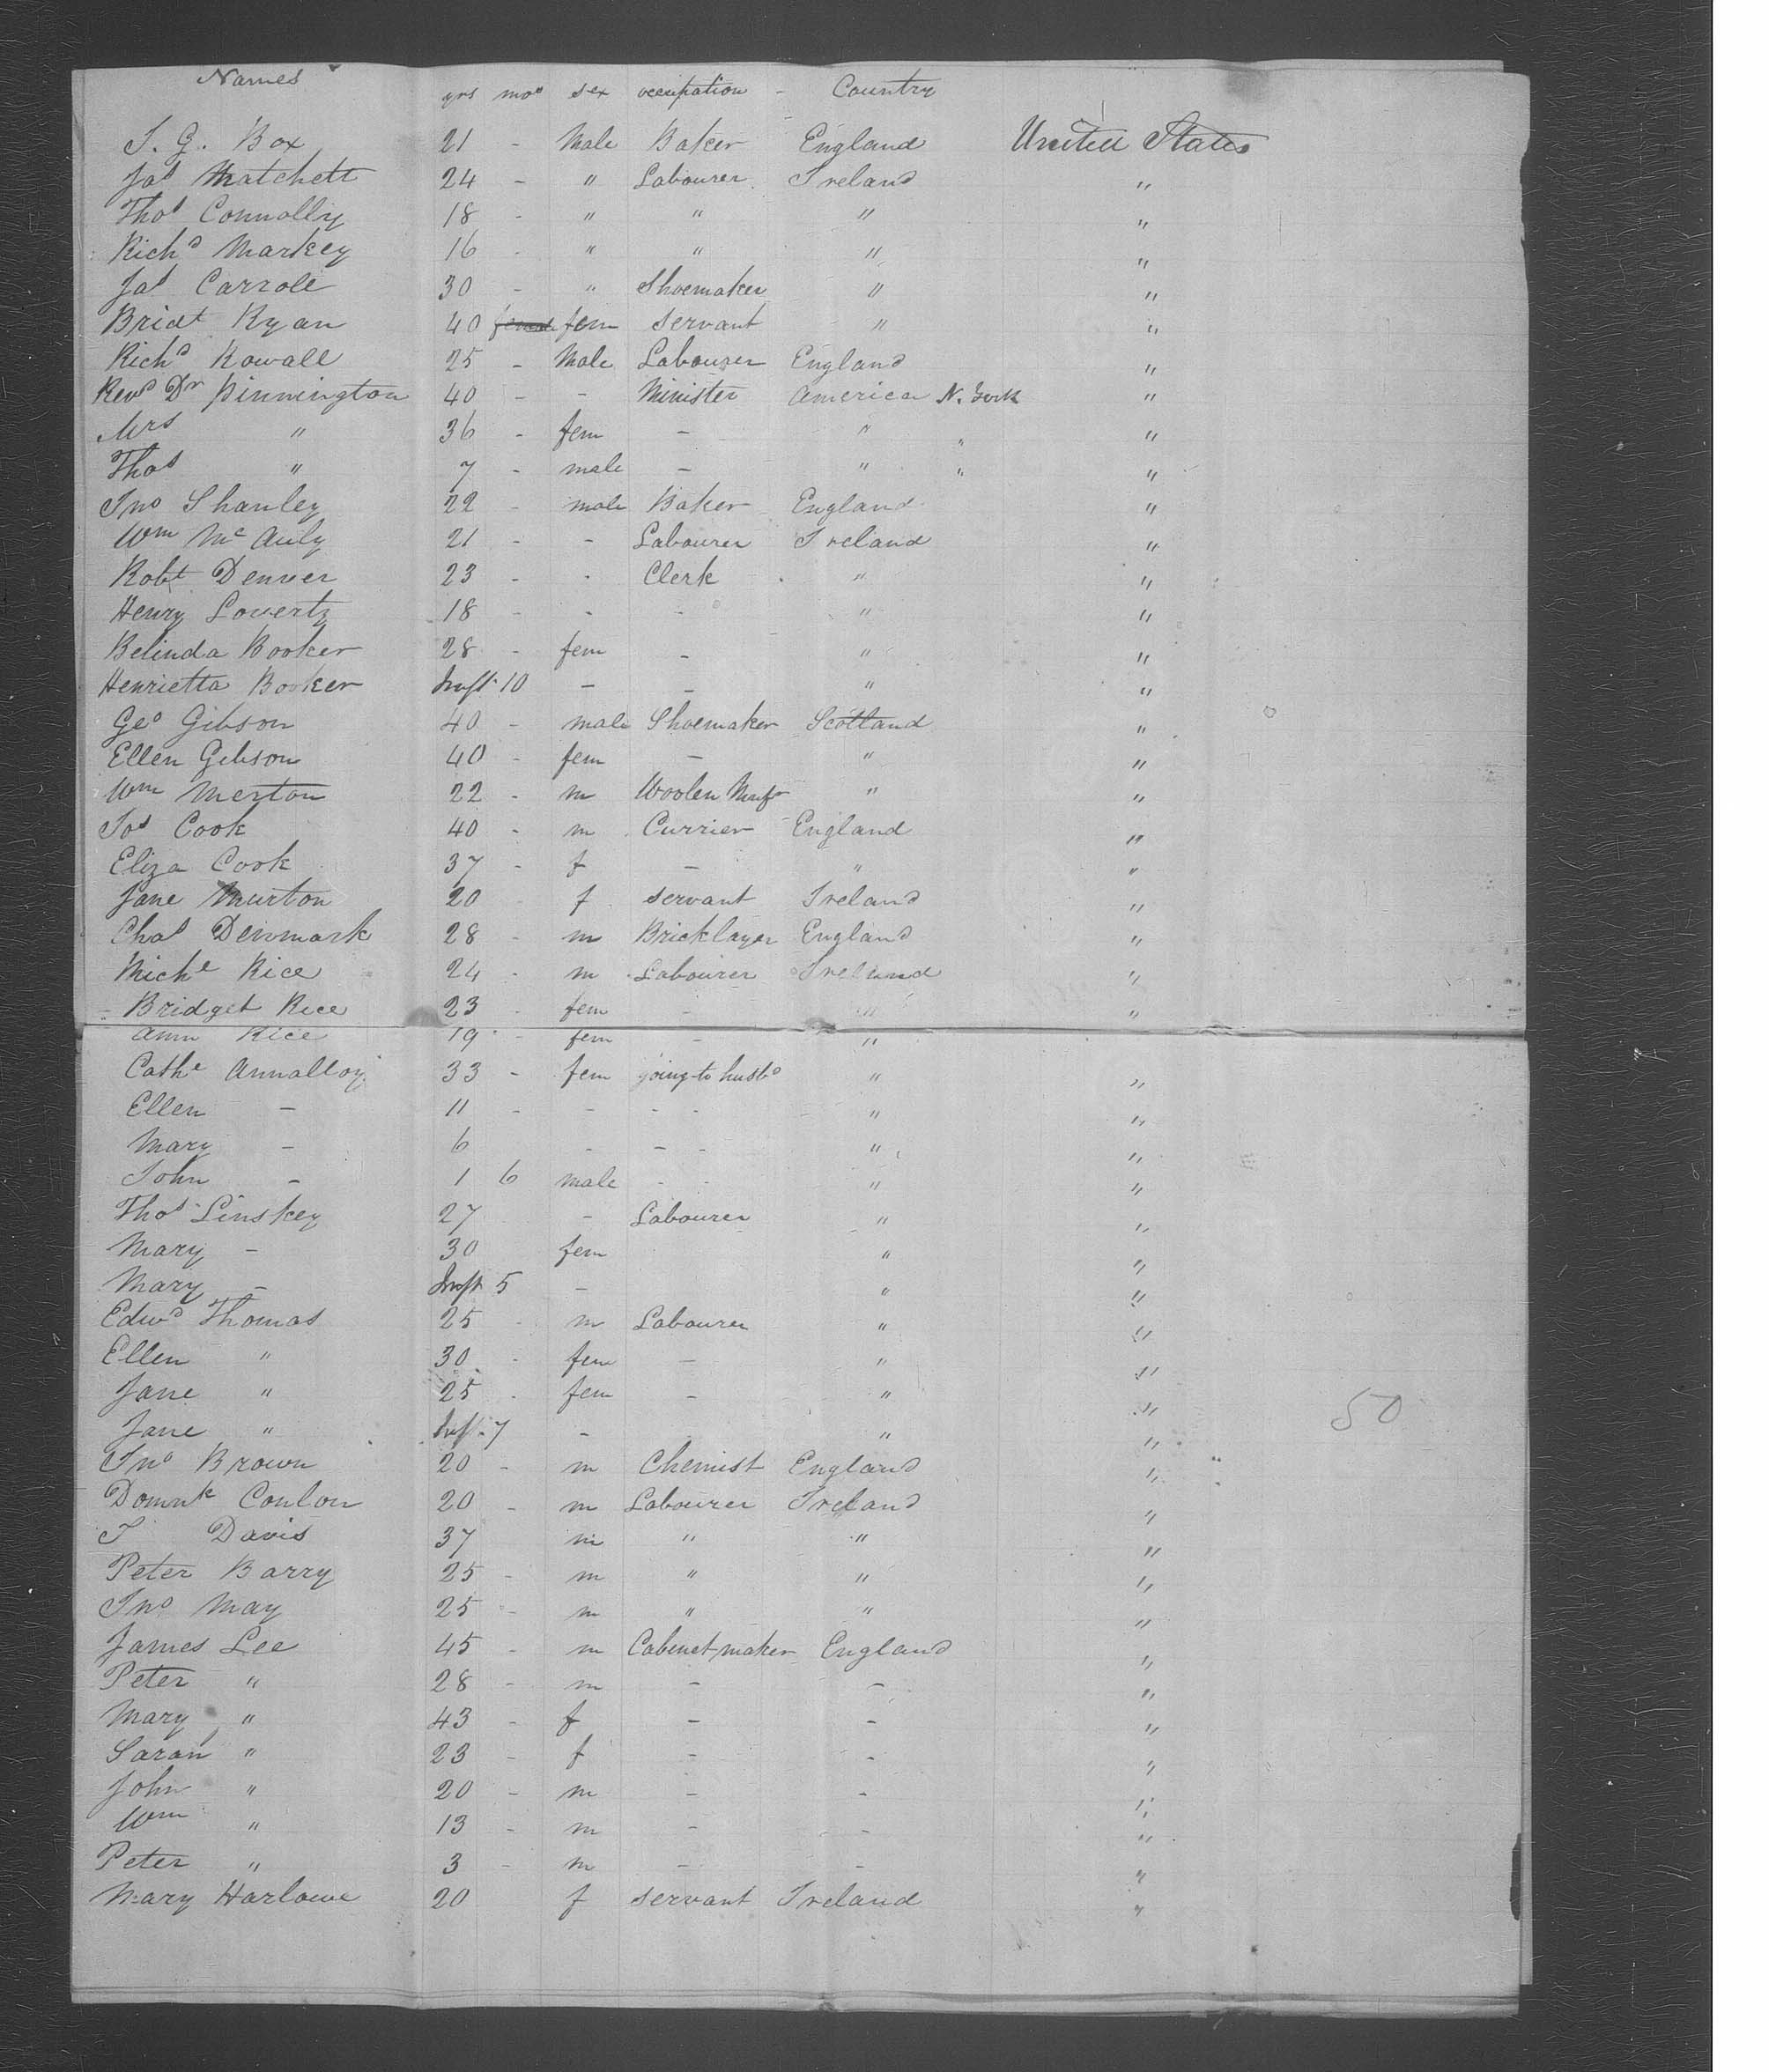 Names yrs mos sex occupation - Country
T. G. Box 21 - Male Baker England United States
Jas Matchett 24 - " Labourer Ireland "
Thos Connolly 18 - " " " "
Richd Markey 16 - " " " "
Jas Carroll 30 - " Shoemaker " "
Bridt Ryan 40 female fem servant " "
Richd Rowall 25 - Male Labourer England "
Revd Dr Pinnington 40 - - Minister America N. York "
Mrs " 36 - fem - " " "
Thos " 7 - male - " " "
Jno Shanley 22 - male Baker England "
Wm McAuly 21 - - Labourer Ireland "
Robt Denver 23 - - Clerk " "
Henry Loverty 18 - - - " "
Belinda Booker 28 - fem - " "
Henrietta Booker Inft 10 - - " "
Geo Gibson 40 - male Shoemaker Scotland "
Ellen Gibson 40 - fem - " "
Wm Merton 22 - m Woolen Manfr " "
Jos Cook 40 - m Currier England "
Eliza Cook 37 - f - " "
Jane Murton 20 f servant Ireland "
Chas Denmark 28 - m Bricklayer England "
Michl Rice 24 - m Labourer Ireland "
Bridget Rice 23 - fem - " "
Ann Rice 19 - fem - "
Cathe Annalloy 33 - fem going to husbd " "
Ellen - 11 - - - - " "
Mary - 6 - - - " "
John - 1 6 male - - " "
Thos Linskey 27 - Labourer " "
Mary - 30 fem " "
Mary - Inft 5 - " "
Edwd Thomas 25 - m Labourer " "
Ellen " 30 - fem - " "
Jane " 25 - fem - " " 50
Jane " Inft - 7 - " "
Jno Brown 20 - m Chemist England "
Domnk Conlon 20 - m Labourer Ireland "
T Davis 37 m " " "
Peter Barry 25 - m " " "
Jno May 25 - m " " "
James Lee 45 - m Cabinet maker England "
Peter " 28 - m - - "
Mary " 43 - f - - "
Sarah " 23 - f - - "
John " 20 - m - - "
Wm " 13 - m - - "
Peter " 3 - m - - "
Mary Harlowe 20 f servant Ireland "